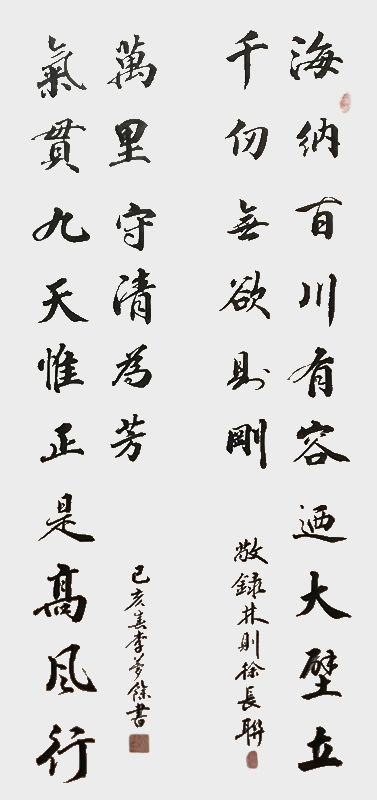 海納百川有容迺大壁立
千仞無欲則剛
敬錄林則徐長聯
氣貫九天惟正是髙風行
萬里守清為芳
己亥春李夢餘書